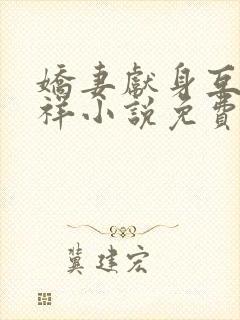 嬌妻獻身互
祥小說免費
冀建宏